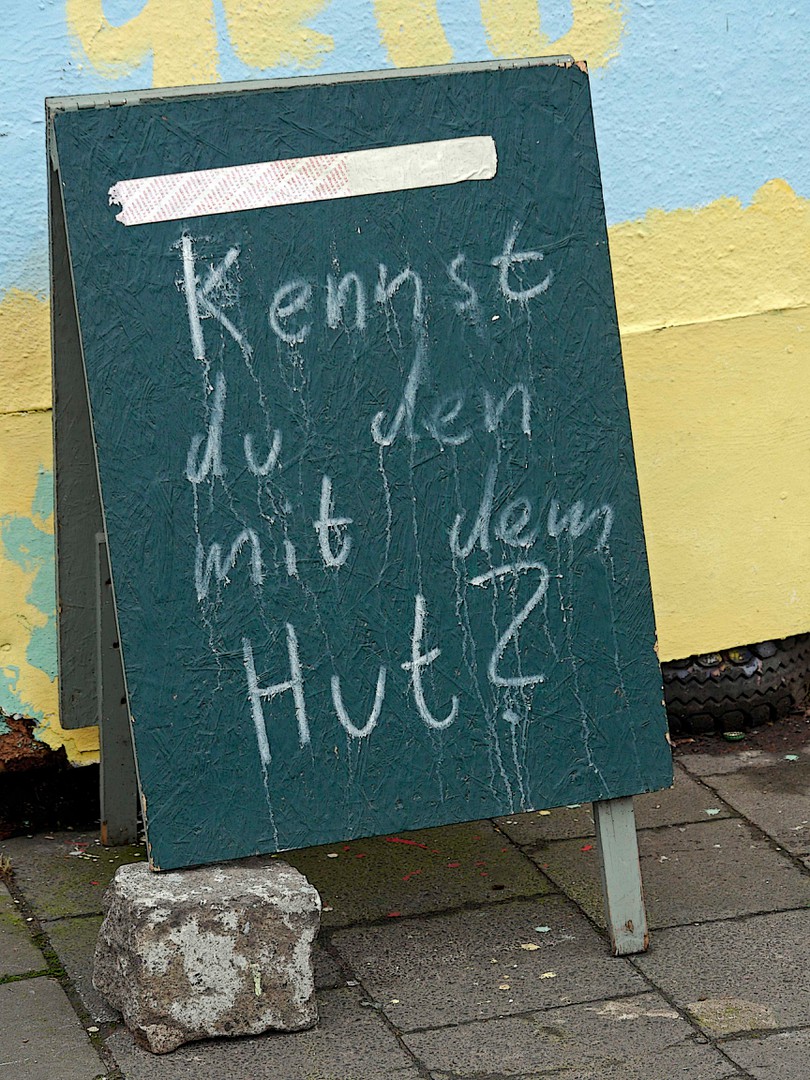 Kennst
du den
mit dem
Hut?